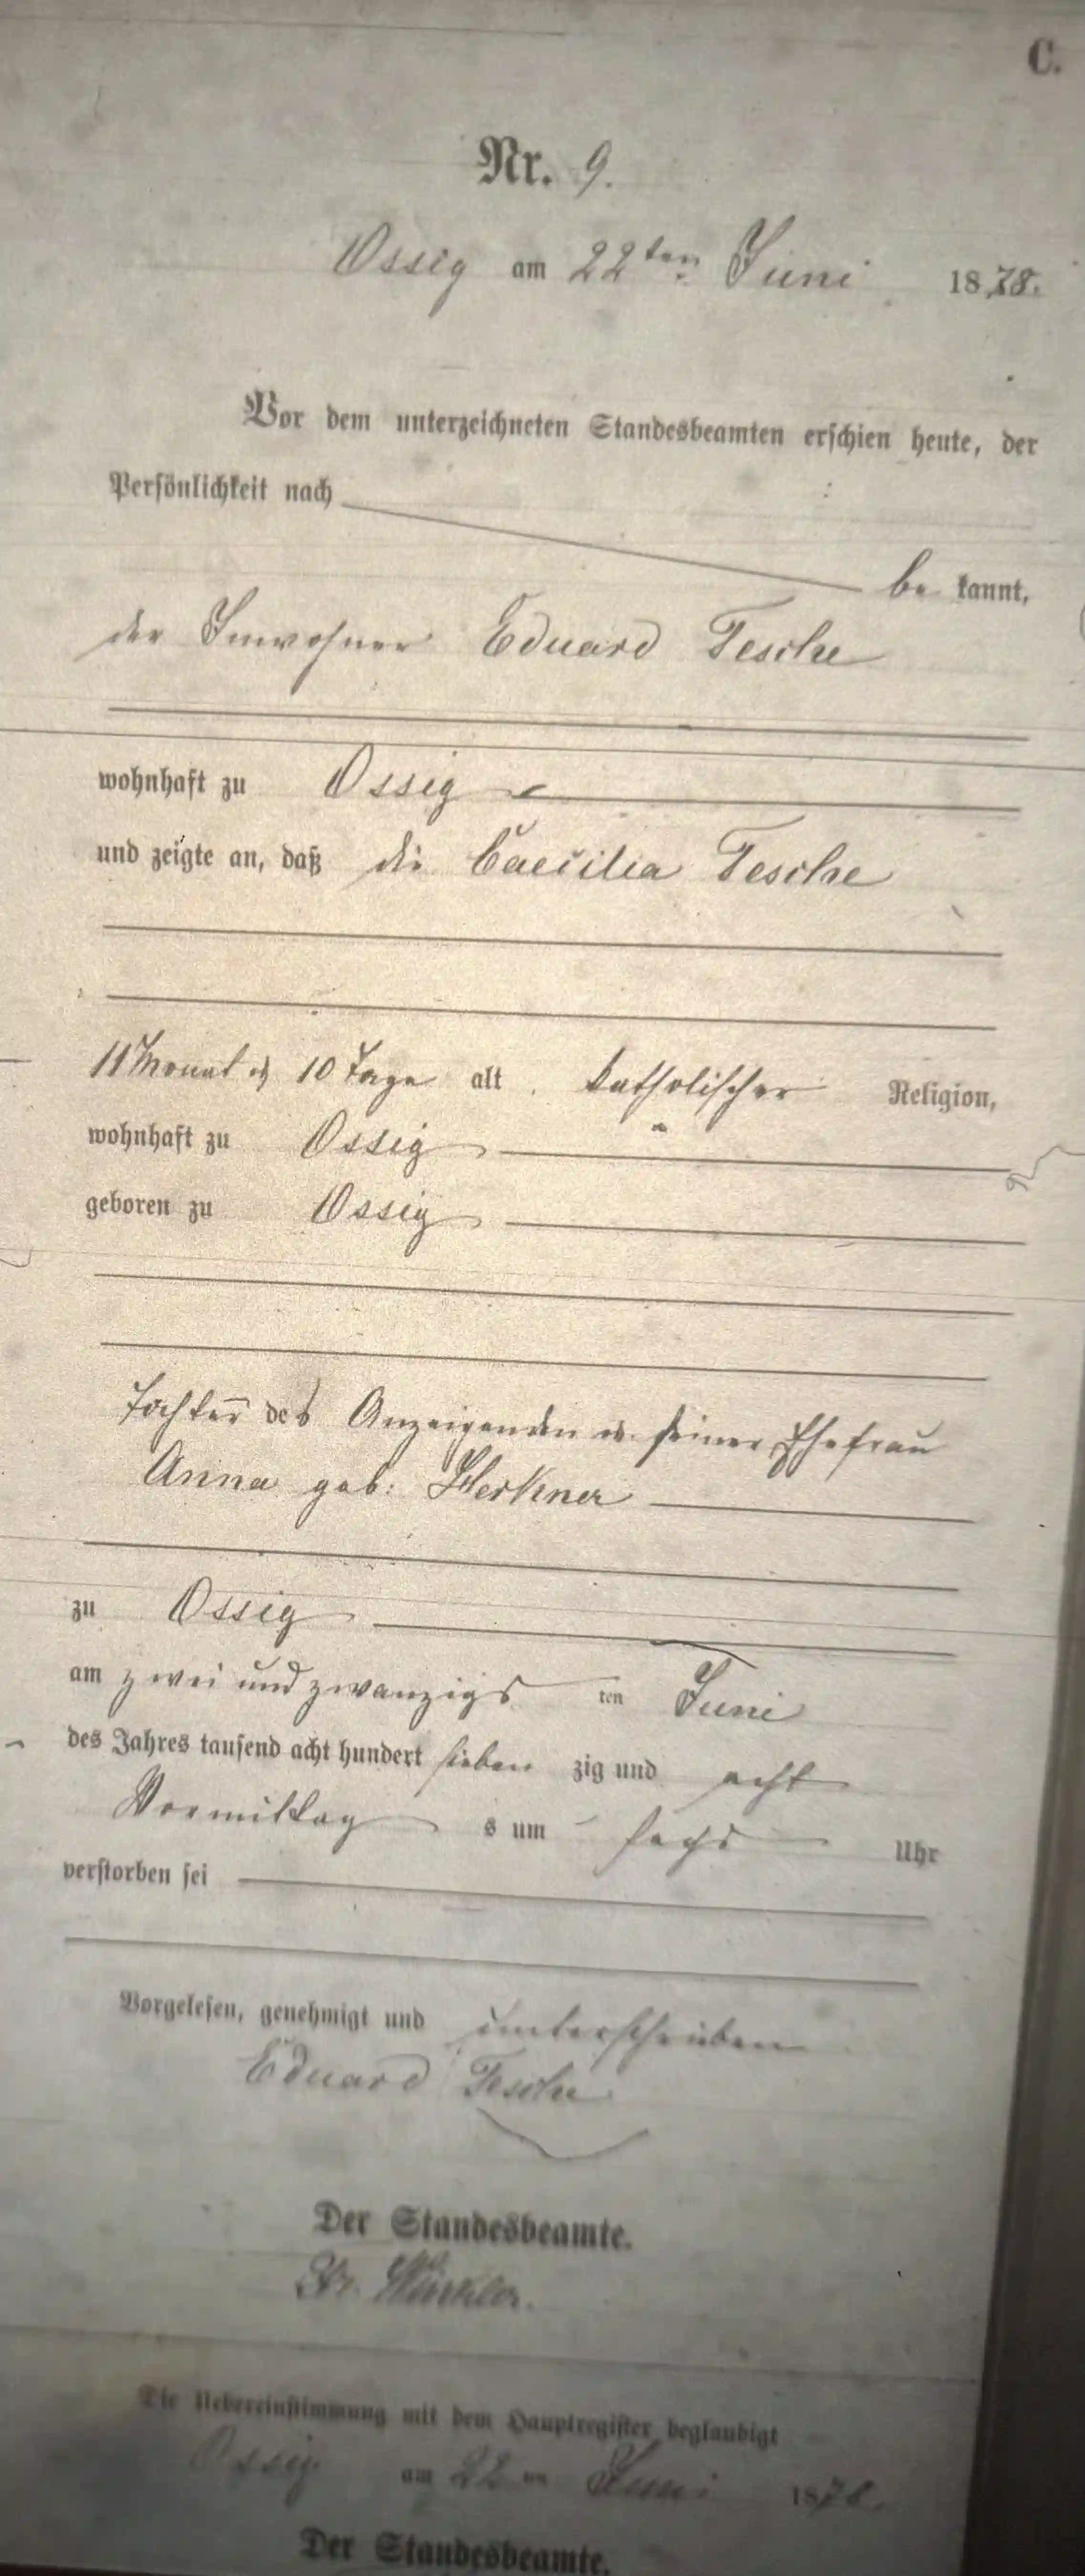 C.
Nr. 9.
Ossig am 22ten Juni 1878.
Vor dem unterzeichneten Standesbeamten erschien heute, der
Persönlichkeit nach
be kannt,
der Inwohner Eduard Tesche
wohnhaft zu Ossig
und zeigte an, daß die Caecilia Tesche
11 Monat u 10 Tage alt katholischer Religion,
wohnhaft zu Ossig
geboren zu Ossig
Tochter des Anzeigenden u. seiner Ehefrau
Anna geb: Herkner
zu Ossig
am zwei und zwanzigs ten Juni
des Jahres tausend acht hundert sieben zig und acht
Vormittag s um sechs Uhr
verstorben sei
Vorgelesen, genehmigt und unterschrieben
Eduard Tesche
Der Standesbeamte.
Die Uebereinstimmung mit dem Hauptregister beglaubigt
Ossig am 22ten Juni 1878.
Der Standesbeamte.